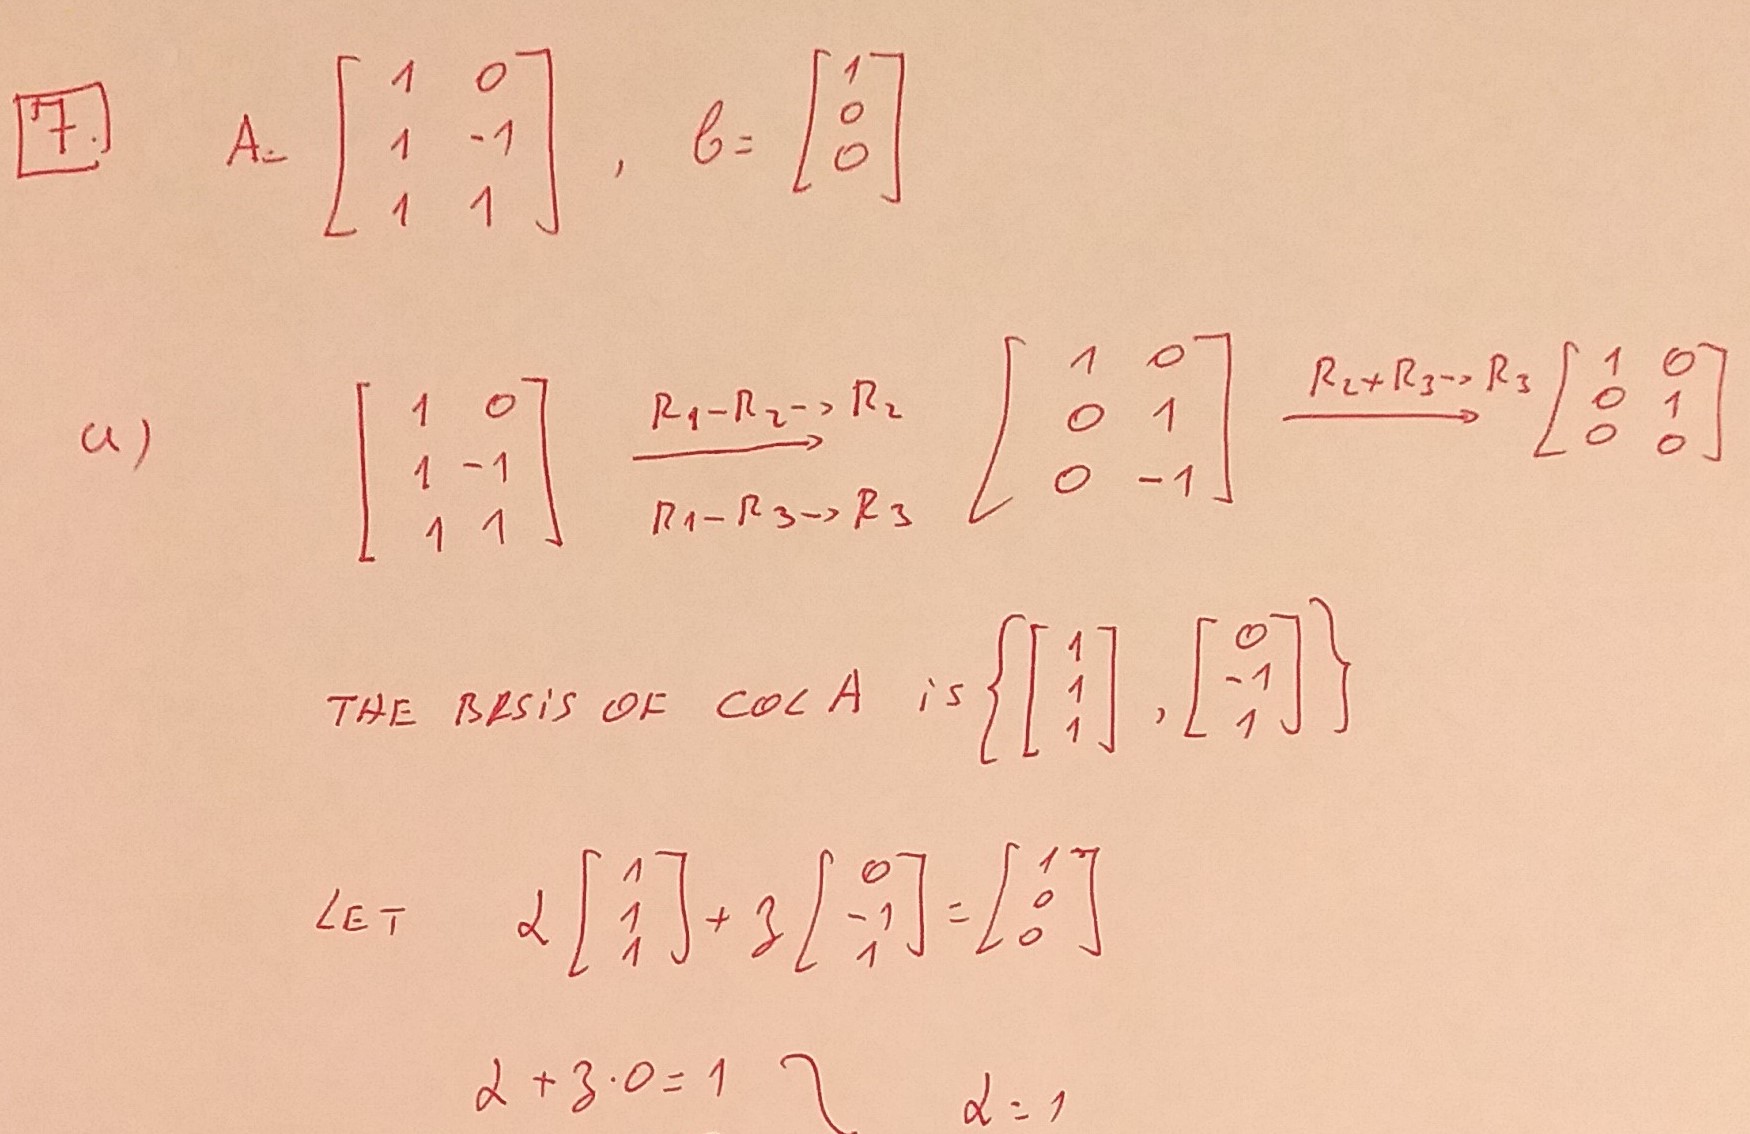 7. A= [1 0; 1 -1; 1 1], b= [1; 0; 0]
a) [1 0; 1 -1; 1 1] R1-R2->R2 R1-R3->R3 [1 0; 0 1; 0 -1] R2+R3->R3 [1 0; 0 1; 0 0]
THE BASIS OF COL A is {[1; 1; 1], [0; -1; 1]}
LET α[1; 1; 1] + β[0; -1; 1] = [1; 0; 0]
α + β·0 = 1 } α = 1